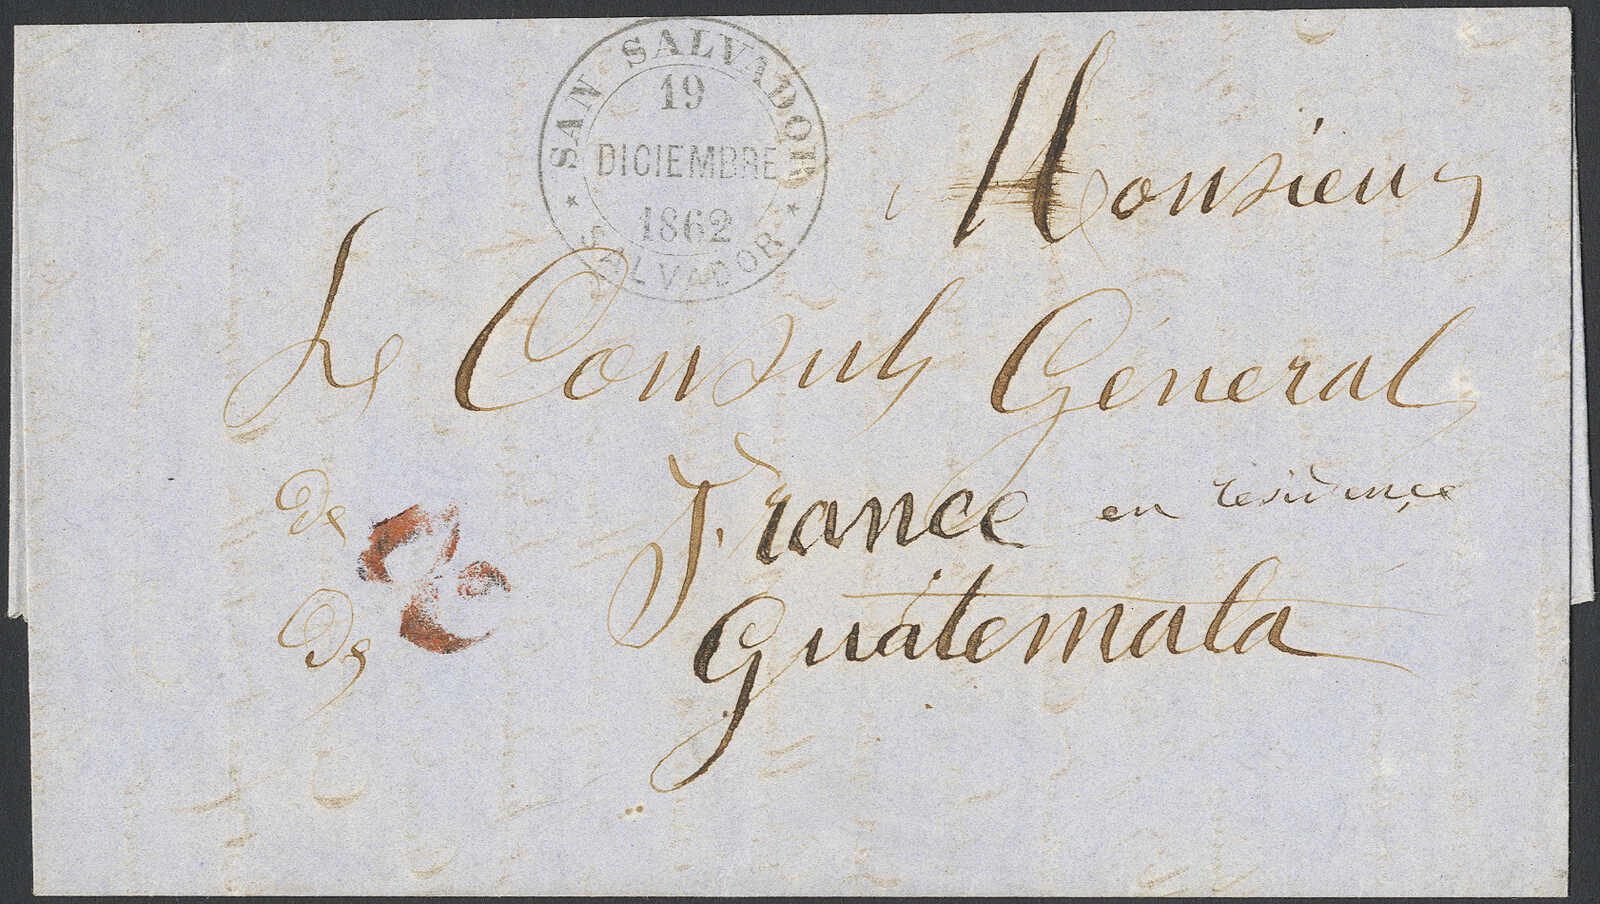 SAN SALVADOR
19
DICIEMBRE
1862
SALVADOR
Monsieur
Le Consul Général
de France en résidence
Guatemala